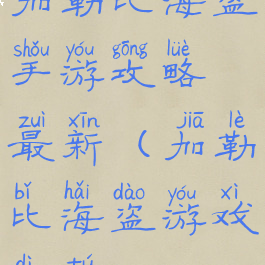 加勒比海盗
shǒu yóu gōng lüè
手游攻略
zuì xīn jiā lè
最新（加勒
bǐ hǎi dào yóu xì
比海盗游戏